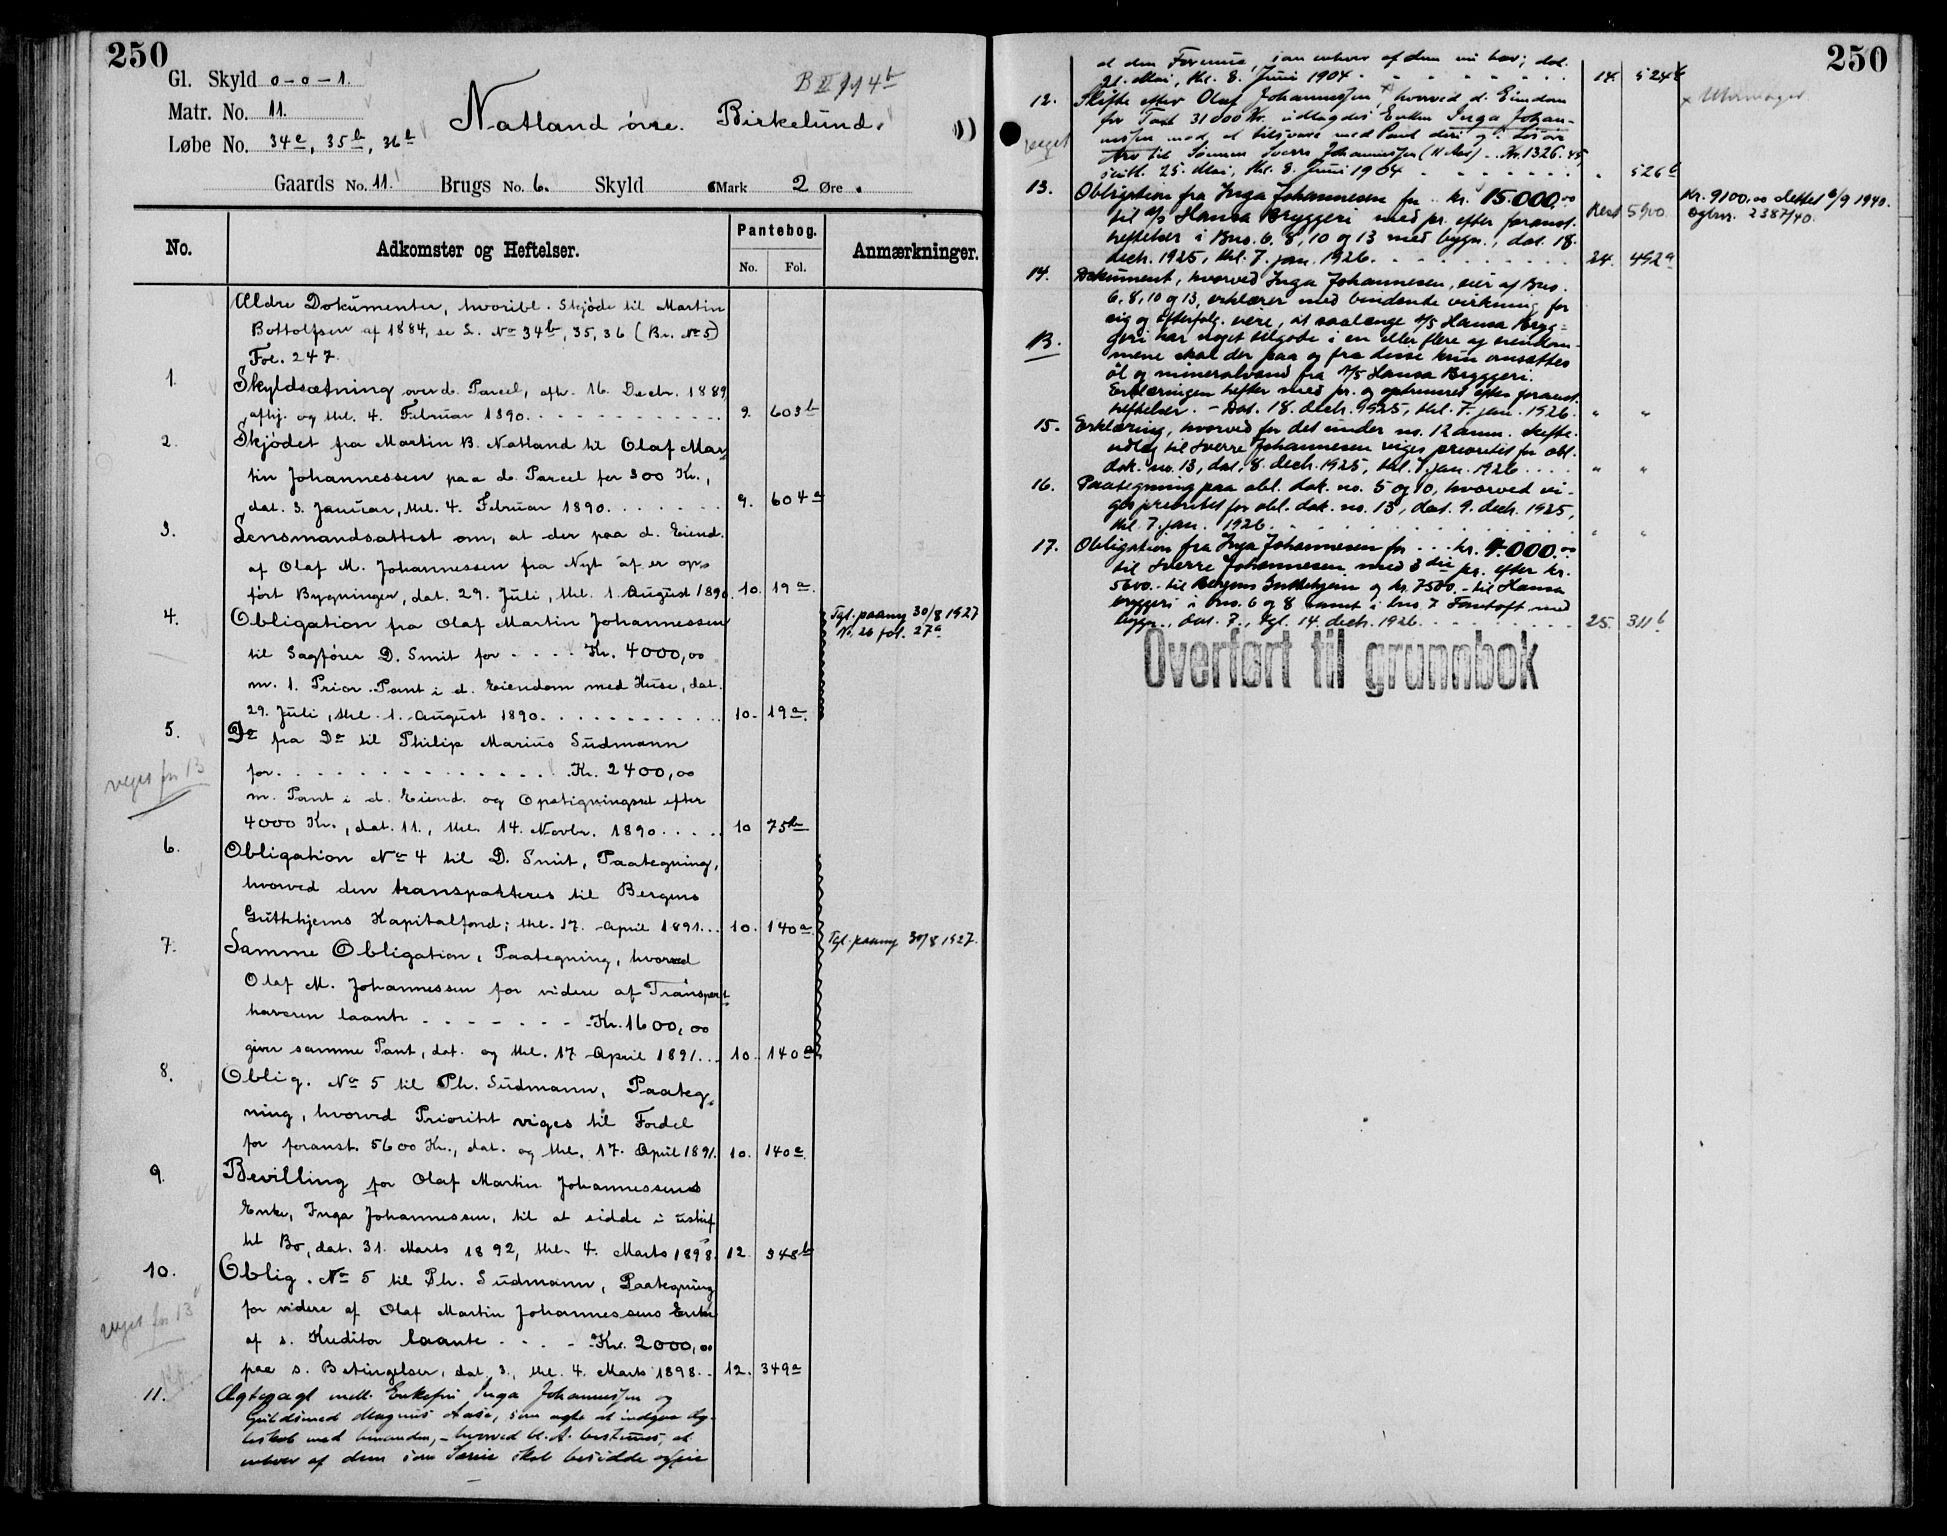 250
Gl. Skyld 0-0-1.
Matr. No. 11.
Løbe No. 34c, 35b, 36b
Natland övre. Birkelund.
Gaards No. 11. Brugs No. 6. Skyld Mark 2 Øre.
No.
Adkomster og Heftelser.
Pantebog.
No. Fol.
Anmærkninger.
Ældre Dokumenter, hvoribl. Skjöde til Martin
Bottolfsen af 1884, se L. No 34b, 35, 36 (Br. No 5)
Fol. 247.
1. Skyldsætning over d. Parcel, afh. 16. Decbr. 1889,
afhj. og thl. 4. Februar 1890. 9. 603b
2. Skjödet fra Martin B. Natland til Olaf Mar-
tin Johannessen paa d. Parcel for 300 Kr.,
dat. 3. Januar, thl. 4. Februar 1890. 9. 604a
3. Lensmandsattest om, at der paa d. Eiend.
af Olaf M. Johannessen fra Nyt af er op-
fört Bygninger, dat. 29. Juli, thl. 1. August 1890. 10. 19a
4. Obligation fra Olaf Martin Johannessen
til Sagförer D. Smit for Kr. 4000,00
m. 1. Prior. Pant i d. Eiendom med Huse, dat.
29. Juli, thl. 1. August 1890. 10. 19a.
Tgl. paany 30/8 1927
No. 26 fol. 27a
5. Do fra Do til Philip Marius Sudmann
for Kr. 2400,00
m. Pant i d. Eiend. og Opstigningsret efter
4000 Kr., dat. 11., thl. 14. Novbr. 1890. 10 75b
viges for 13
6. Obligation No 4 til D. Smit, Paategning,
hvorved den transporteres til Bergens
Guttehjems Kapitalfond; thl. 17. April 1891. 10. 140a.
7. Samme Obligation, Paategning, hvorved
Olaf M. Johannessen for videre af Transport
haveren laante Kr. 1600,00
giver samme Pant, dat. og thl. 17 April 1891. 10. 140a
Tgl. paany 30/8 1927.
8. Oblig. No 5 til Ph. Sudmann, Paateg-
ning, hvorved Prioritet viges til Fordel
for foranst. 5600 Kr., dat. og thl. 17. April 1891. 10. 140a.
9. Bevilling for Olaf Martin Johannessens
Enke, Inga Johannessen, til at sidde i uskif
tet Bo, dat. 31. Marts 1892, thl. 4. Marts 1898. 12. 348b
10. Oblig. No 5 til Ph. Sudmann, Paategning
for videre af Olaf Martin Johannessens Enke
af s. Kreditor laante Kr. 2000,00
paa s. Betingelser, dat. 3., thl. 4. Marts 1898. 12. 349a
viget for 13
11. Ægtepagt mell. Enkefru Inga Johannessen og
Guldsmed Magnus Aase, som agte at indgaa Æg-
teskab med hinanden, - hvorved bl. A. bestemes, at
enhver af dem som Særeie skal besidde og eie
250
al den Formue, som enhver af dem nu har; dat.
21. Mai, thl. 8. Juni 1904. 14. 524b
12. Skifte efter Olaf Johannessen, hvorved d. Eiendom
for Taxt 31000 Kr. udlagdes Enken Inga Johan-
nessen mod at tilsvare med Pant deri og i Lösöre
Arv til Sönnen Sverre Johannessen (11 Aar) Kr. 1326.45,
slutt. 25. Mai, thl. 8. Juni 1904 " 526b
viget
13. Obligation fra Inga Johannesen for kr. 15.000.00
til A/S Hansa Bryggeri med pr. efter foranst.
heftelser i Brno. 6, 8, 10 og 13 med bygn., dat. 18.
decb. 1925, thl. 7. jan. 1926. 24. 492a
Rest 5900.
Kr. 9100.00 slettet 6/9 1940.
Dgbnr. 2387/40.
14. Dokument, hvorved Inga Johannesen, eier af Brno.
6, 8, 10 og 13, erklærer med bindende virkning for
sig og efterfølg. eiere, at saalænge A/S Hansa Bryg-
geri har noget tilgode i en eller flere af eiendom-
mene skal der paa og fra disse kun omsættes
öl og mineralvand fra A/S Hansa Bryggeri.
Erklæringen hefter med pr. og optrinsret efter foranst.
heftelser. - Dat. 18. decb. 1925, thl. 7. jan. 1926. " "
B.
15. Erklæring, hvorved for det under no. 12 anm. skifte-
udlæg til Sverre Johannesen viges prioritet for obl.
dok. no. 13, dat. 8. decb. 1925, thl. 7. jan. 1926. " "
16. Paategning paa obl. dok. no. 5 og 10, hvorved vi-
ges prioritet for obl. dok. no. 13, dat. 9. decb. 1925,
thl. 7. jan. 1926. " "
17. Obligation fra Inga Johannesen for kr. 4.000.00
til Sverre Johannesen med 3die pr. efter kr.
5600.- til Bergens Guttehjem og kr. 7500.- til Hansa
bryggeri i bno. 6 og 8 samt i bno. 7 Fantoft med
bygn., dat. ?., tgl. 14. decb. 1926. 25. 311b
Overført til grunnbok